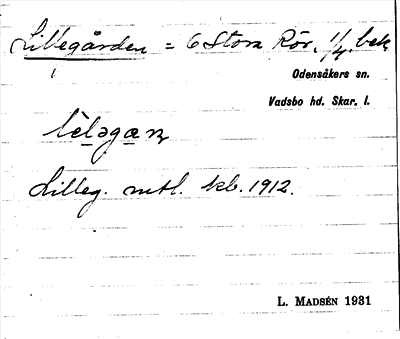 Lillegården = 6 Stora Rör, 1/4 bek
Odensåkers sn.
Vadsbo hd. Skar. l.
Lilleg. mtl. kb. 1912.
L. MADSÉN 1931